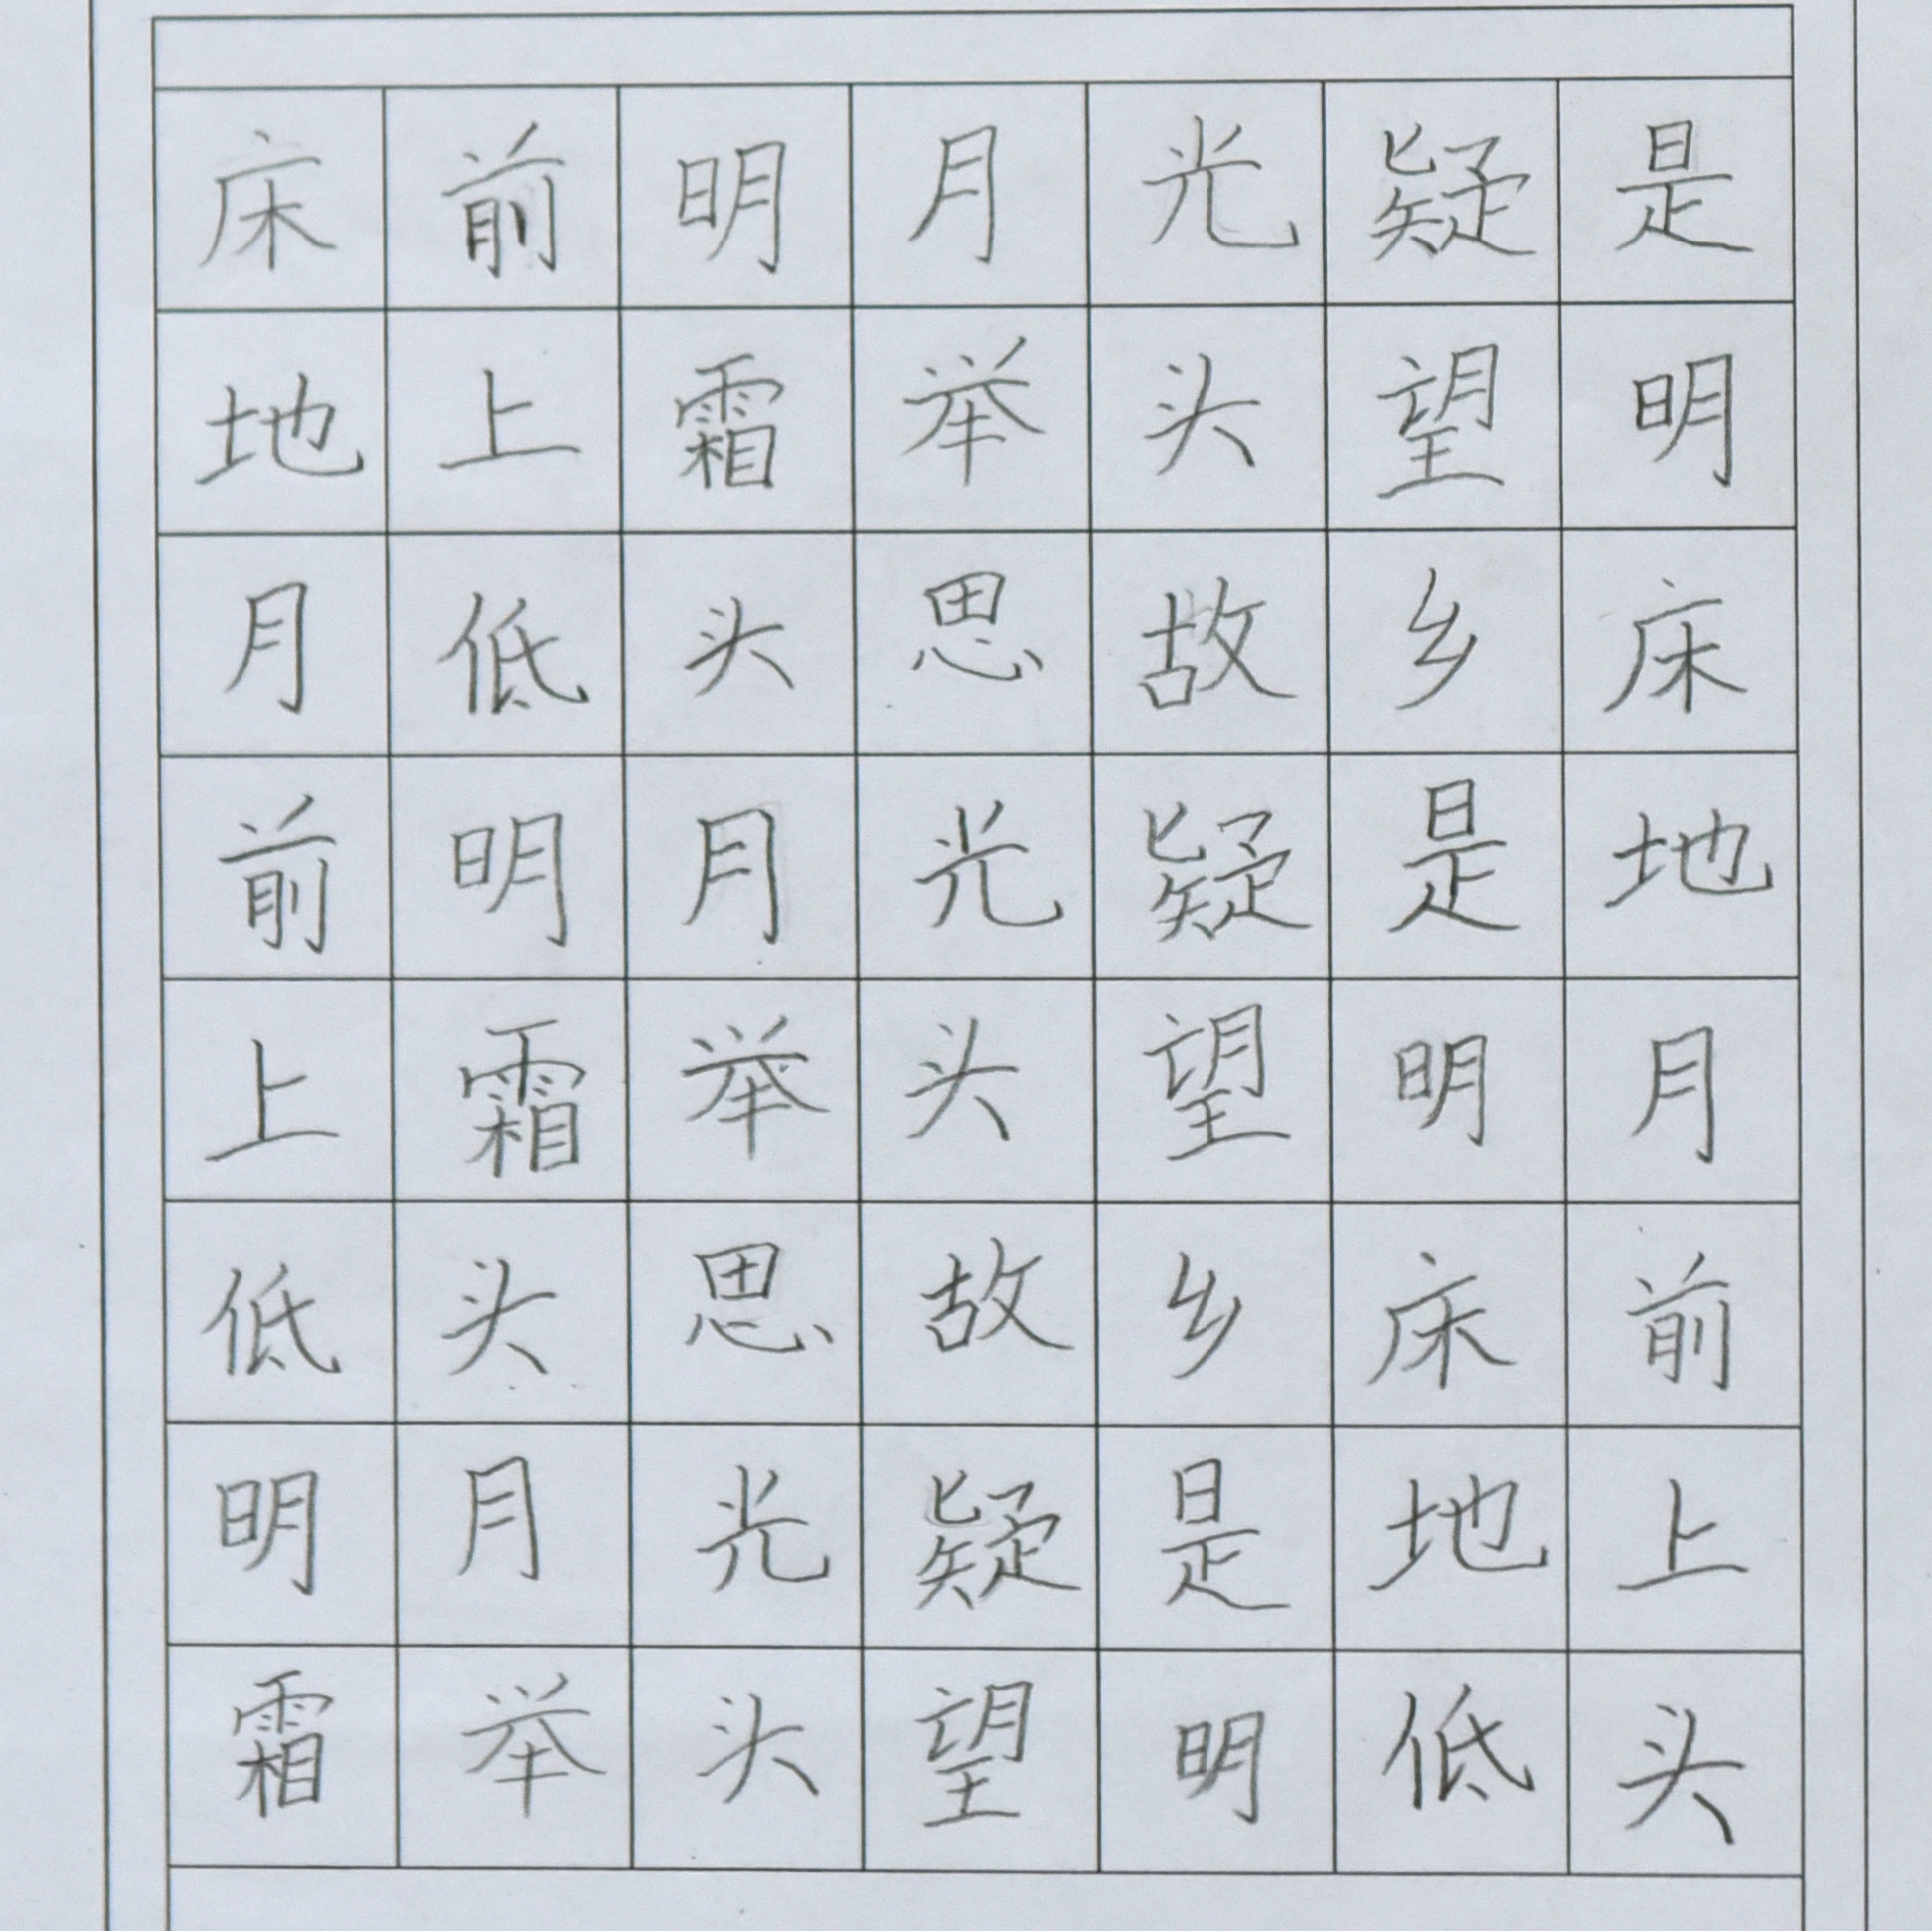 床前明月光疑是
地上霜举头望明
月低头思故乡床
前明月光疑是地
上霜举头望明月
低头思故乡床前
明月光疑是地上
霜举头望明低头